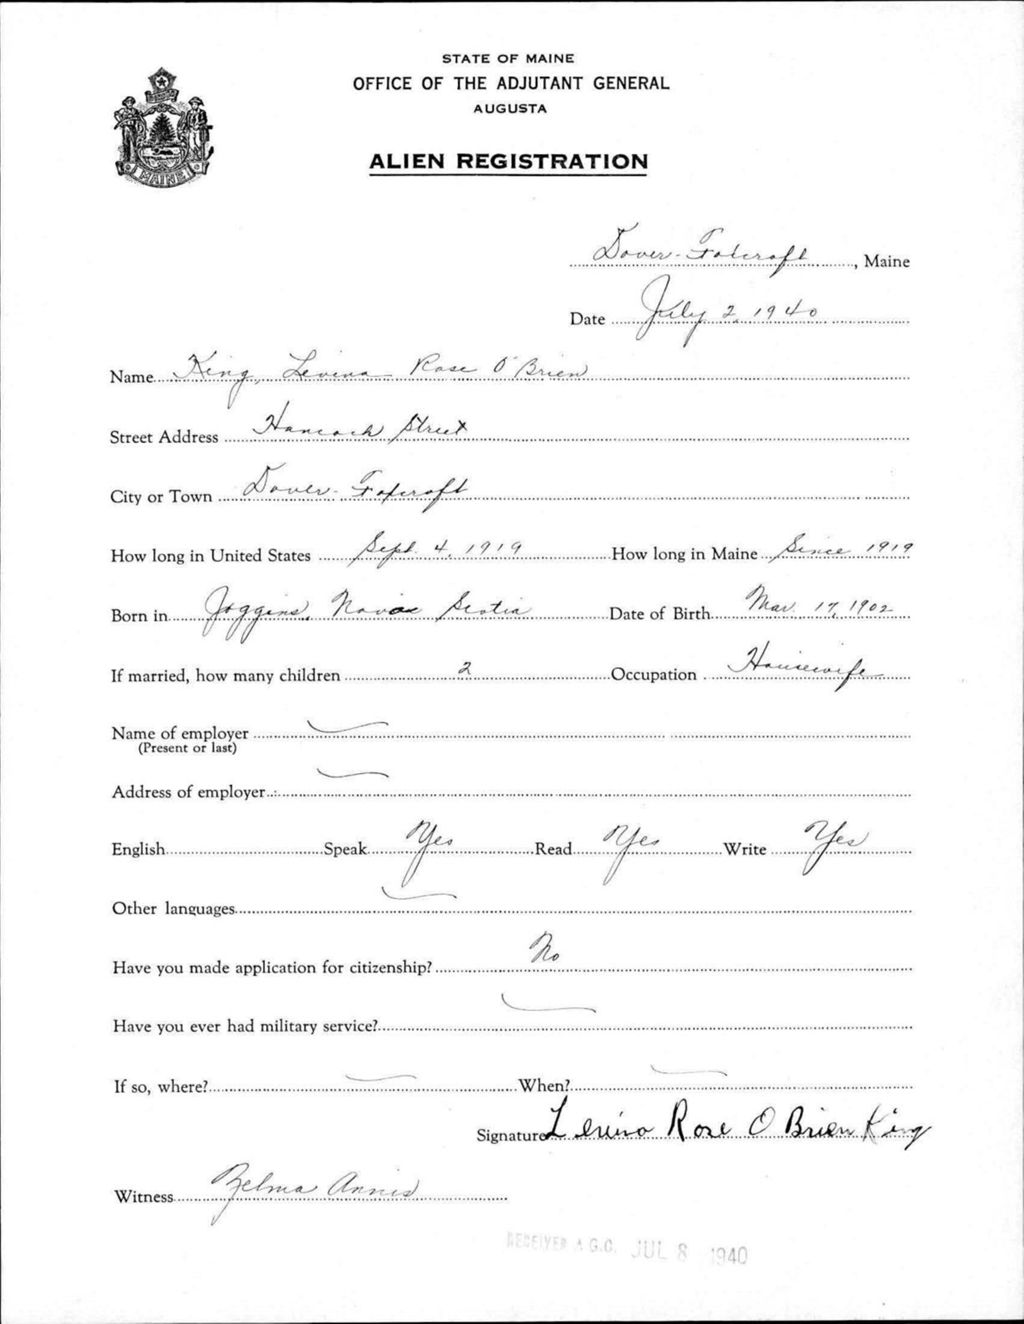 STATE OF MAINE
OFFICE OF THE ADJUTANT GENERAL
AUGUSTA
MAINE
ALIEN REGISTRATION
Dover-Foxcroft, Maine
Date July 2, 1940
Name King, Levina Rose O'Brien
Street Address Hancock Street
City or Town Dover-Foxcroft
How long in United States Sept. 4, 1919 How long in Maine Since 1919
Born in Joggins, Nova Scotia Date of Birth Mar. 17, 1902
If married, how many children 2 Occupation Housewife
Name of employer
(Present or last)
Address of employer
English Speak Yes Read Yes Write Yes
Other languages
Have you made application for citizenship? No
Have you ever had military service?
If so, where? When?
Signature Levina Rose O Brien King
Witness Zelma Annis
RECEIVED A.G.O. JUL 8 1940